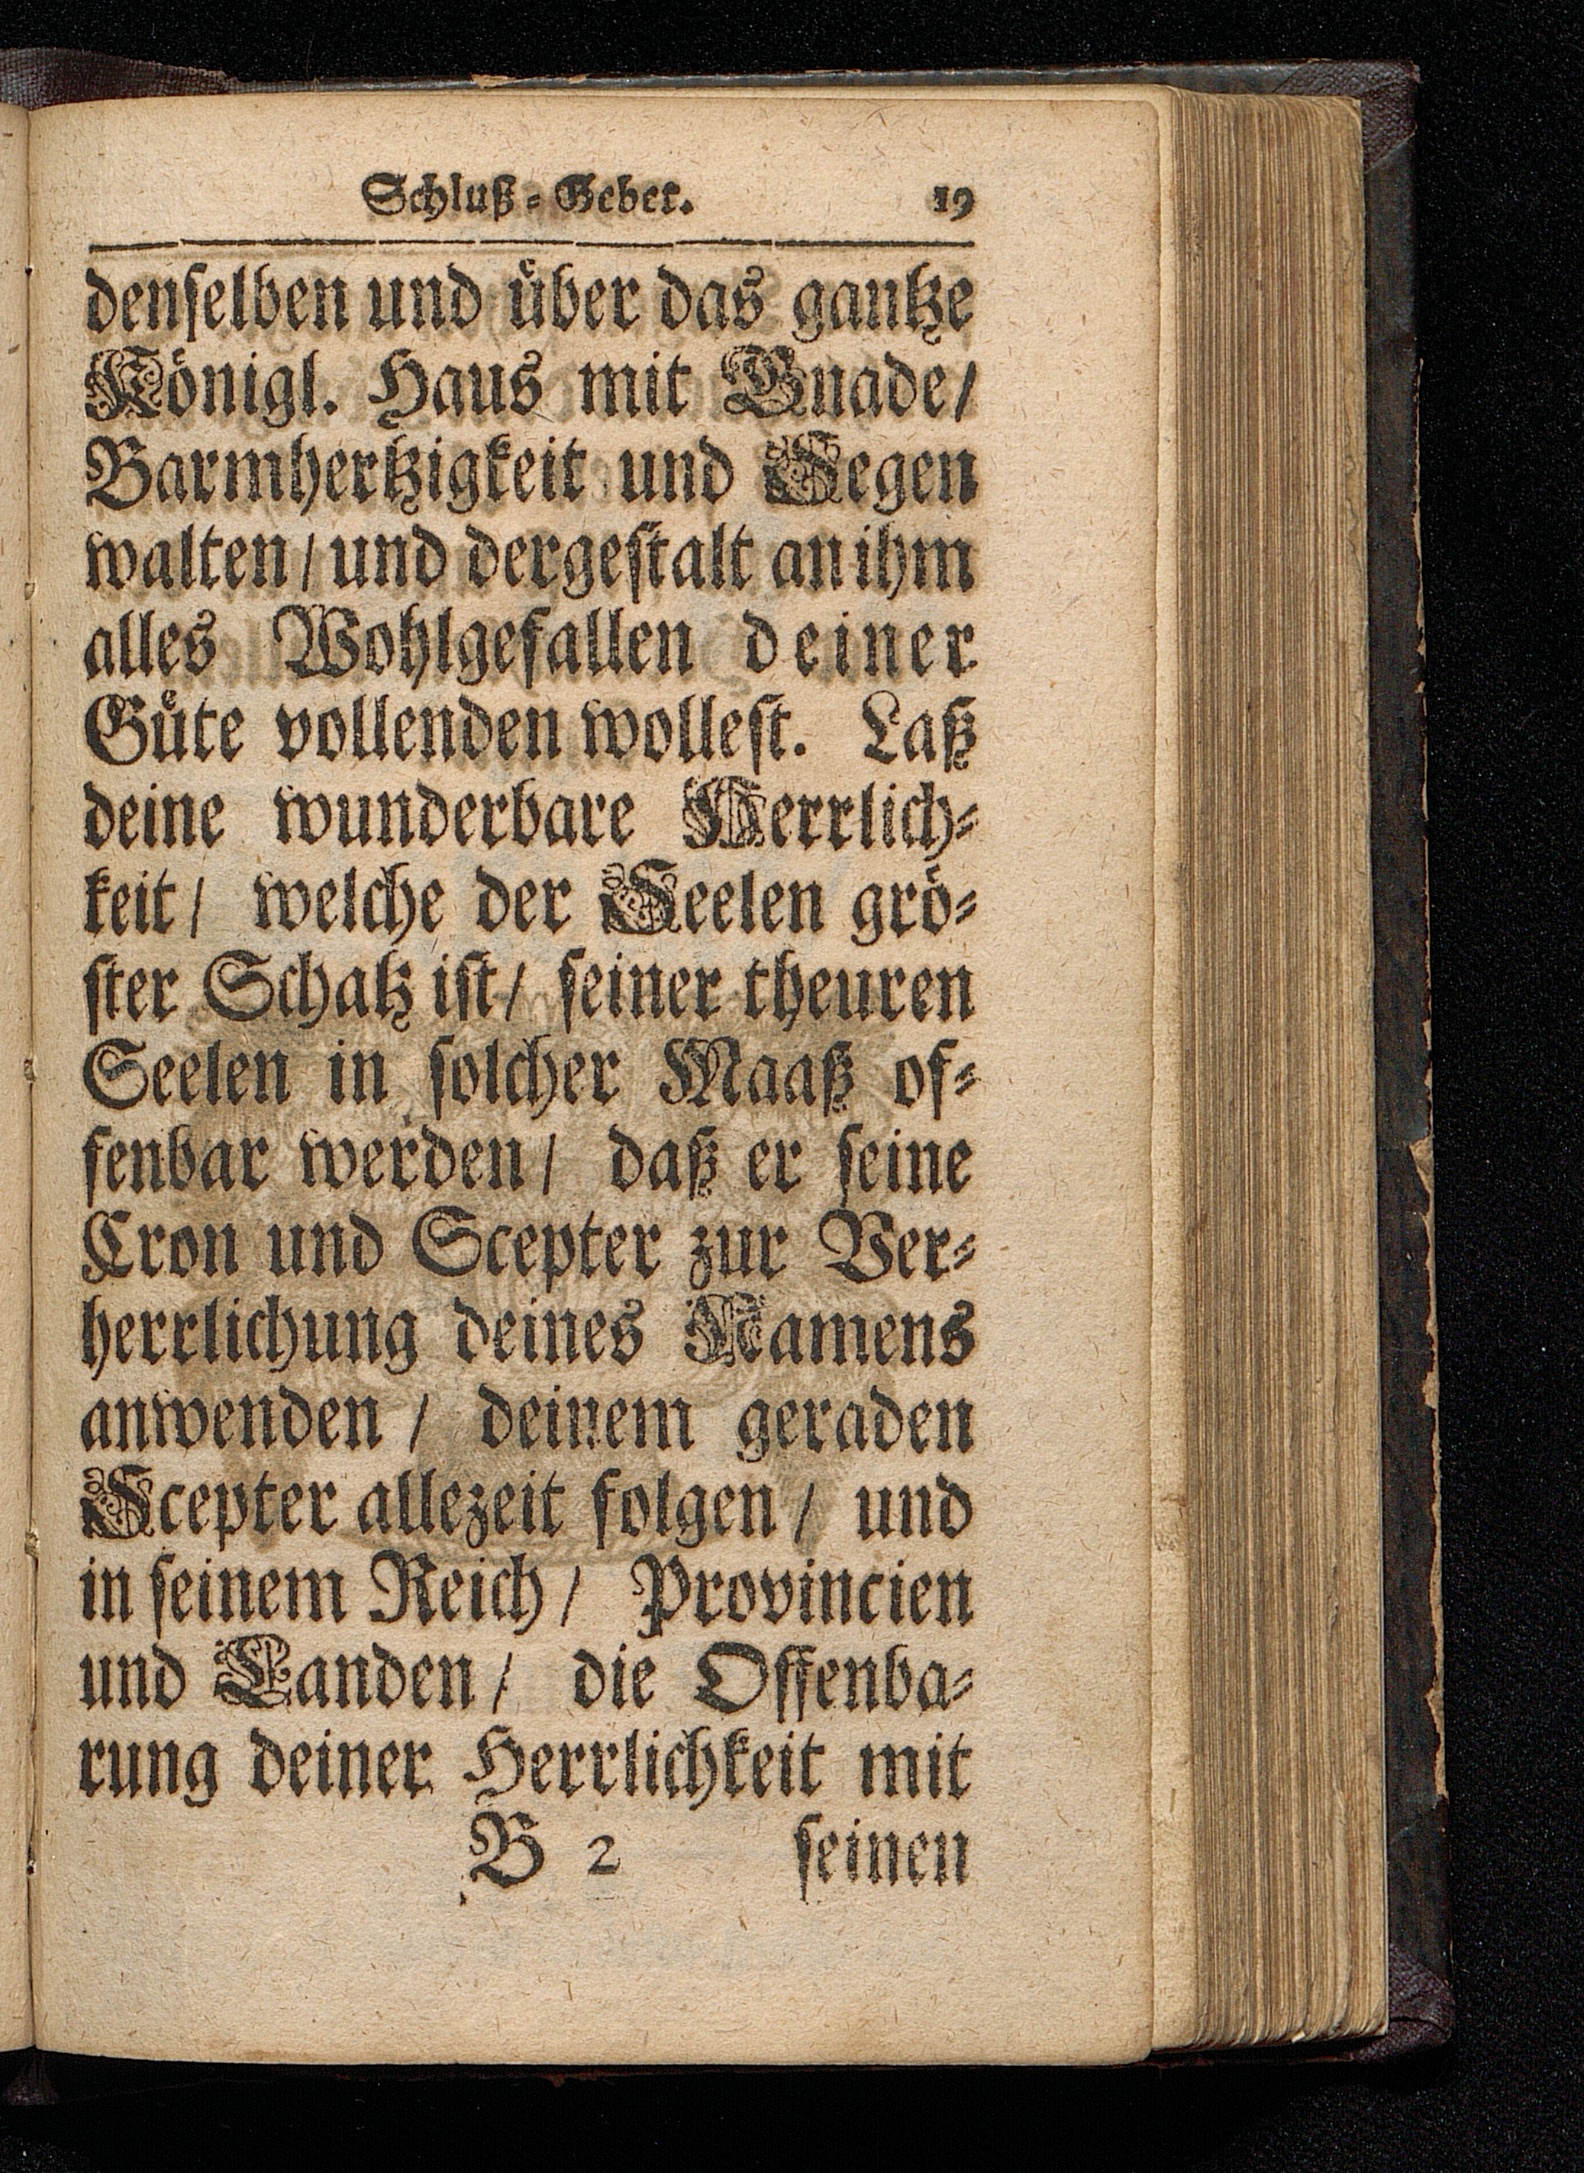 Schluß-Gebet. 19
denselben und über das gantze
Königl. Haus mit Gnade/
Barmhertzigkeit und Segen
walten/ und dergestalt an ihm
alles Wohlgefallen deiner
Güte vollenden wollest. Laß
deine wunderbare Herrlich-
keit/ welche der Seelen grö-
ster Schatz ist/ seiner theuren
Seelen in solcher Maaß of-
fenbar werden/ daß er seine
Cron und Scepter zur Ver-
herrlichung deines Namens
anwenden/ deinem geraden
Scepter allezeit folgen/ und
in seinem Reich/ Provincien
und Landen/ die Offenba-
rung deiner Herrlichkeit mit
B 2 seinen